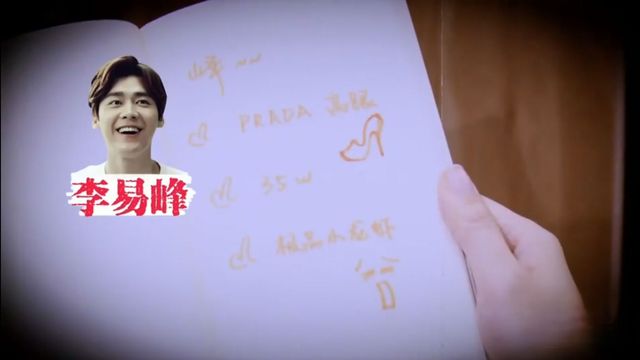 峰~~
PRADA 高跟
李易峰
35w
极品小龙虾